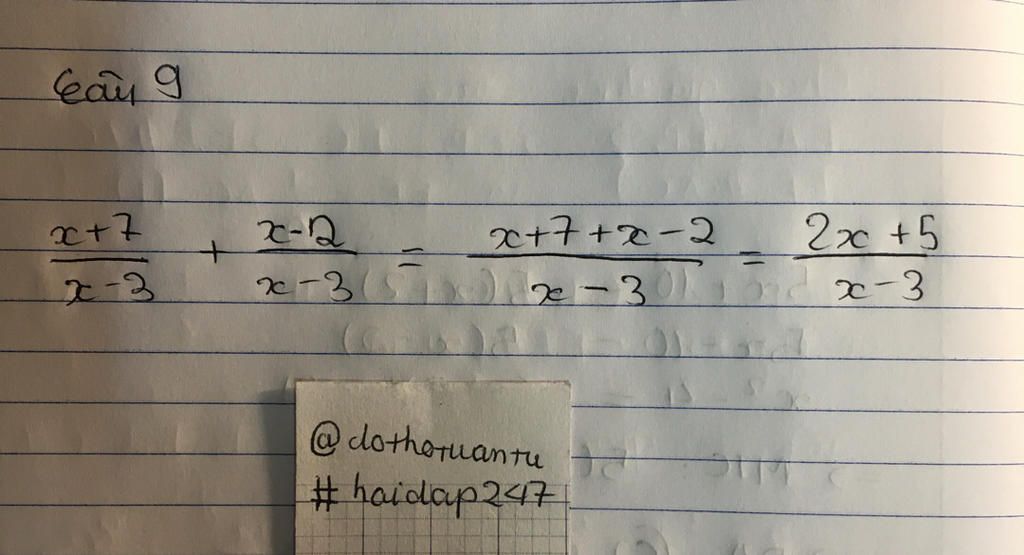 Câu 9
x+7 / x-3 + x-2 / x-3 = x+7+x-2 / x-3 = 2x+5 / x-3
@dothotuantu
# haidap247